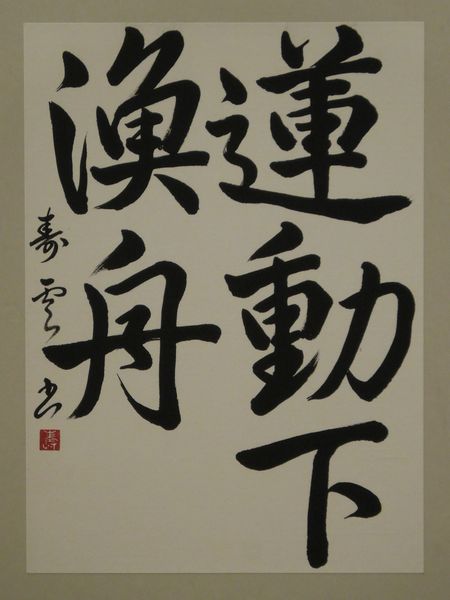 蓮動下
漁舟
寿雲书